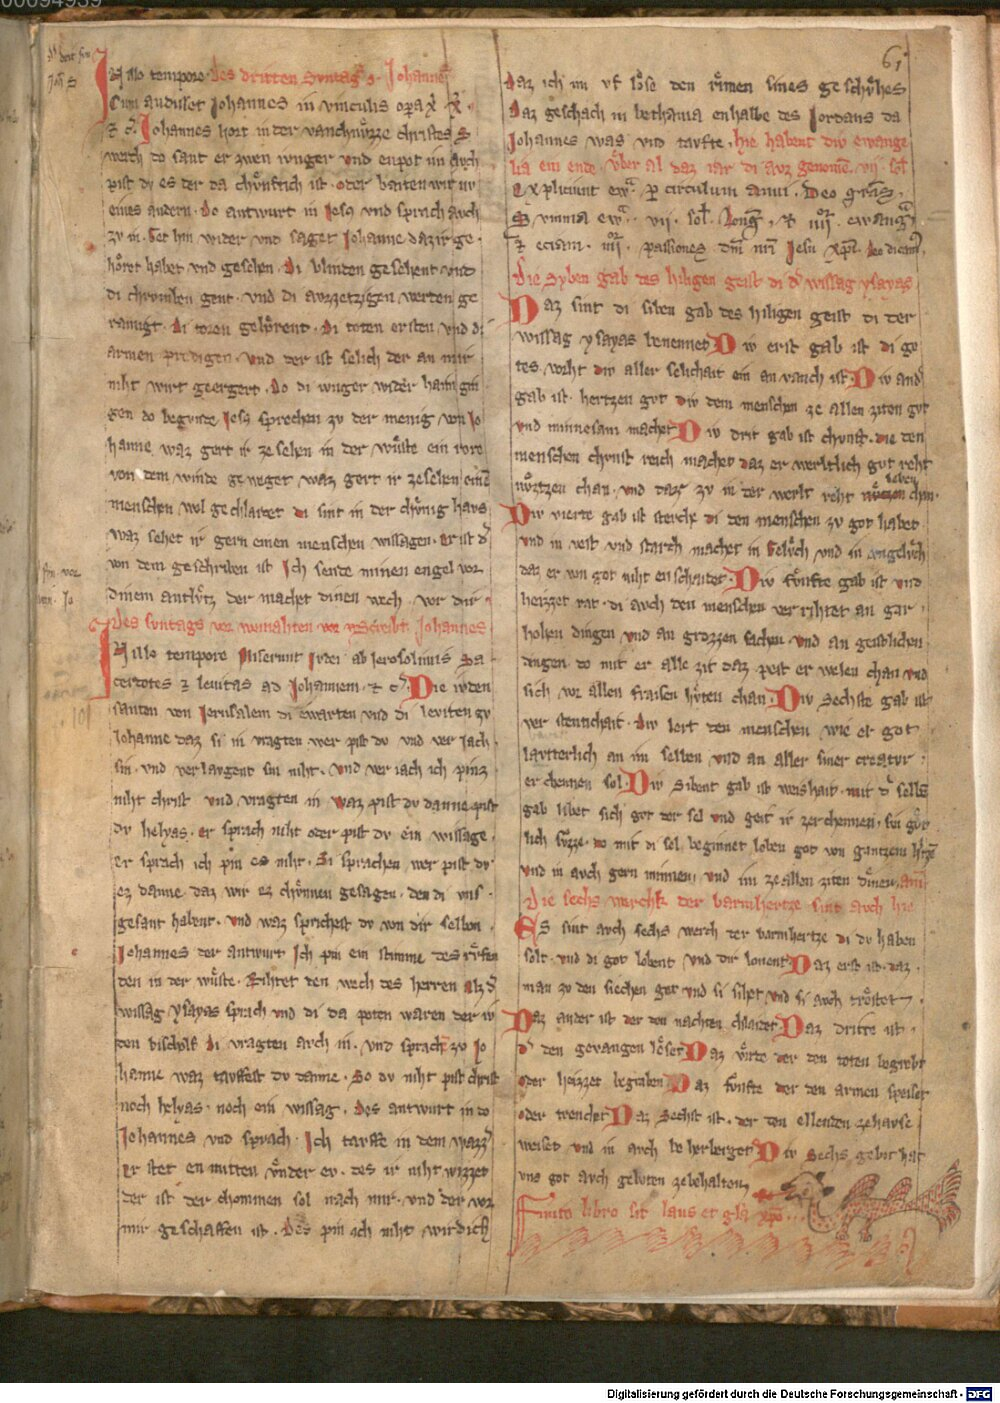 00094939
61
In illo tempore Des dritten Suntags Johannes
Cum audisset Johannes in vinculis opera
Johannes hort in der vanchnüzze christes
werch do sant er zwen iunger und enpot im auch
pist du es der da chünftich ist oder baiten wir nv
eines andern. Do antwurt in Jesus vnd sprach auch
zu in. Get hin wider vnd saget Johanne daz ir ge
höret habet vnd gesehen. Di blinden gesehent vnd
di chrumben gent. vnd di auzzetzigen werdent ge
rainigt. di toren gehörent. di toten ersten vnd di
armen predigen. vnd der ist selich der an mir
niht wirt geergert. Do di iunger wider haim gin
gen do begunde Jesus sprechen zu der menig von Jo
hanne waz gert ir ze sehen in der wüste ein rore
von dem winde geweget waz gert ir ze sehen eine
menschen wol gechlaidet di sint in der chünig haus
waz sehet ir gern einen menschen wissagen. er ist der
von dem geschriben ist Ich sende minen engel vor
dinem antlütz der machet dinen wech vor dir
Des suntags vor weinahten Johannes
In illo tempore Miserunt Judei ab Jerosolimis Sa
cerdotes et levitas ad Johannem et c. Die iuden
santen von Jerusalem di ewarten vnd di leviten zu
Johanne daz si in vragten wer pist du vnd ver iach
sin. vnd verlaugent sin niht. vnd ver iach ich pinz
niht christ vnd vragten in waz pist du danne pist
du helyas. er sprach niht oder pist du ein wissage.
er sprach ich pin es niht. Si sprachen wer pist du
ez danne. daz wir ez chünnen gesagen. den di uns
gesant habent. vnd waz sprichest du von dir selben
Johannes der antwurt Ich pin ein stimme des rüfen
den in der wüste. Rihtet den wech des herren alz der
wissag ysayas sprach vnd di da poten waren der iu
den bischolf di vragten auch in. vnd sprach zu Jo
hanne waz tauffest du danne. So du niht pist christ
noch helyas. noch ein wissag. des antwurt in do
Johannes vnd sprach. Ich tauffe in dem wazzer
Er stet en mitten vnder ev. des ir niht wizzet
der ist der chommen sol nach mir. vnd der vor
mir geschaffen ist. des pin ich niht wirdich
daz ich im vf löse den riemen sines geschühes
Daz geschach in bethania enhalbe des Jordans da
Johannes was vnd taufte. hie habent div ewange
lia ein ende. Über al daz iar di auz genomen. vii. sol
Expliciunt ewa. per circulum anni. Deo gracias.
Summa ewa. vii. sol. longa. et iiii. ewang
Et eciam. iiii. passiones domini nostri Jesu xpi.
Die syben gab des hiligen geist di der wissag ysayas
Daz sint di siben gab des hiligen geist di der
wissag ysayas benennet Div erst gab ist di go
tes vorht div aller selichait ein an vanch ist. Div ander
gab ist. hertzen gut div dem menschen ze allen ziten gut
vnd minnesam machet Div drit gab ist chunst. die den
menschen chunst reich machet daz er werltlich gut reht
nützen chan. vnd daz zu in der werlt reht leben chan.
Div vierte gab ist sterche di den menschen zu got habet
vnd in vest vnd starch machet in gelück vnd in ungelück
daz er von got niht enschaidet. Div fünfte gab ist vnd
heizzet rat. di auch den menschen verrihtet an gar
hohen dingen vnd an grozzen sachen. vnd an geistlichen
dingen. do mit er alle zit daz pest er welen chan vnd
sich vor allen fraisen hüten chan. Div Sechste gab ist
verstentichait. div lert den menschen wie er got
lautterlich an im selben vnd an aller siner creatur
erchennen sol. Div sibent gab ist weishait. mit der selben
gab libet sich got der sel vnd geit ir zerchennen. sei
lich süzze. do mit di sel beginnet loben got von gantzem
vnd in auch gern minnen. vnd im ze allen ziten dienen. amen
Die sechs werchk der barmhertze sint auch hie
Es sint auch sechs werch der barmhertze di du haben
solt. vnd di got lobent vnd dir lonent Daz erst ist. daz
man zu den siechen get vnd si sihet vnd si auch tröstet.
Daz ander ist der den nachten chlaidet. Daz dritte ist.
der den gevangen löset Daz vierte der den toten begrebt
oder heizzet begraben. Daz fünfte der den armen speiset
oder trenchet Daz Sechst ist. der den ellenden ze hause
weiset vnd in auch beherberget Div Sechs gebot hat
vns got auch geboten ze behalten.
Finito libro sit laus et gloria xpo...
Digitalisierung gefördert durch die Deutsche Forschungsgemeinschaft - DFG